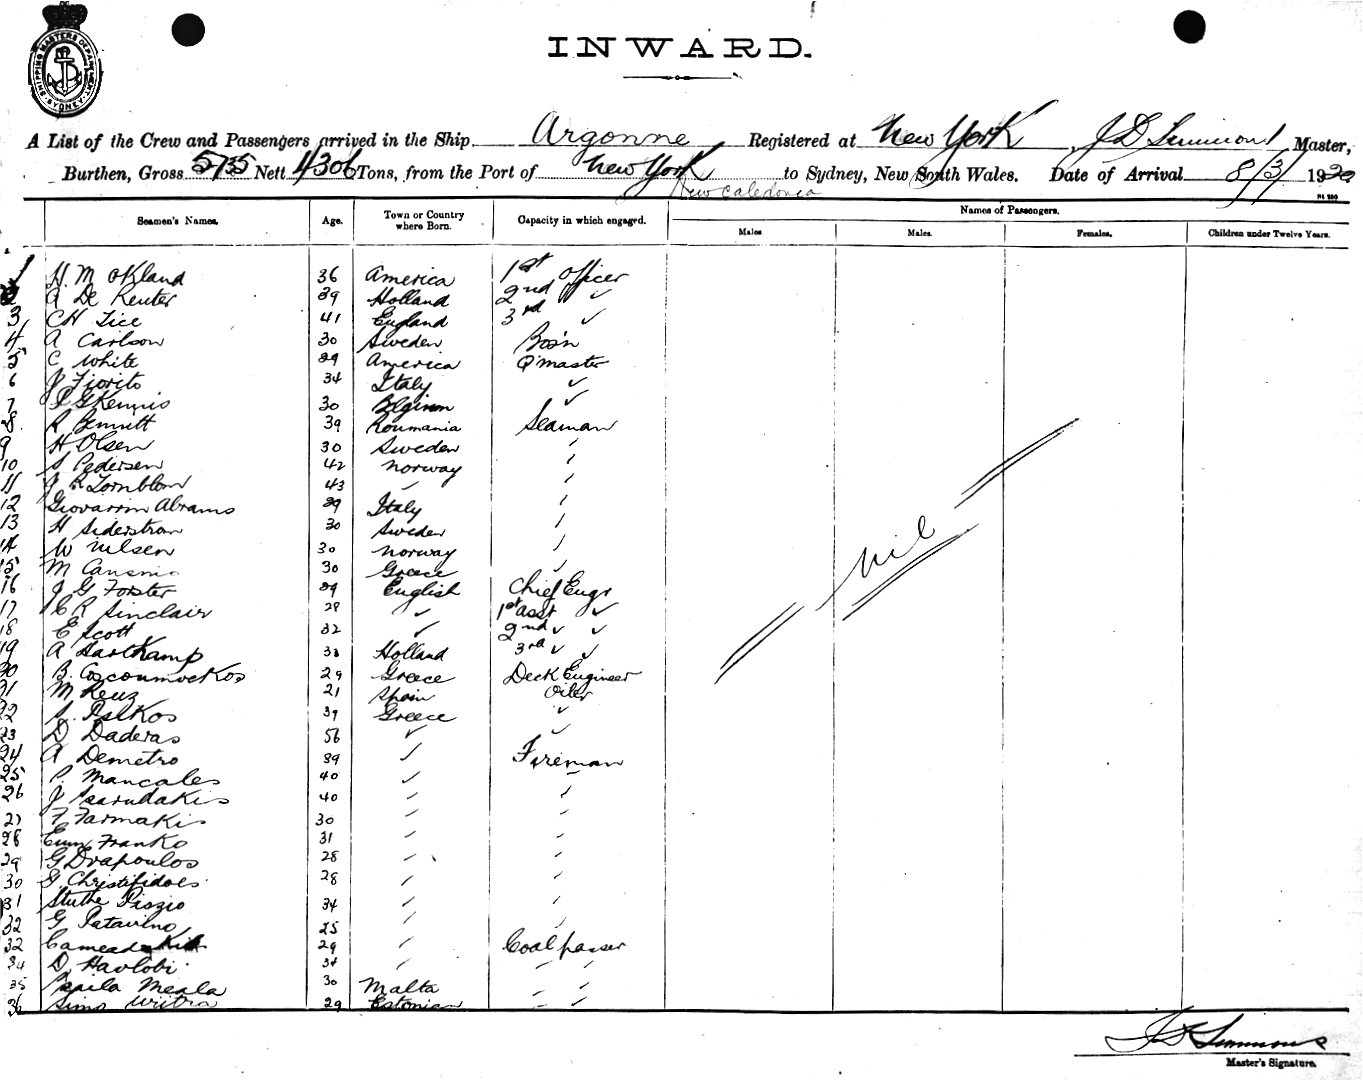 SHIPPING MASTERS DEPARTMENT SYDNEY
INWARD.
A List of the Crew and Passengers arrived in the Ship Argonne Registered at New York, J D Simmons Master,
Burthen, Gross 5735 Nett 4306 Tons, from the Port of New York to Sydney, New South Wales. Date of Arrival 8/3/1920
New Caledonia
Seamen's Names. Age. Town or Country where Born. Capacity in which engaged. Names of Passengers.
Males Males. Females. Children under Twelve Years.
H. M Okland 36 America 1st Officer
2 A De Reuter 39 Holland 2nd ✓
3 CH Tice 41 England 3rd ✓
4 A Carlson 30 Sweden Bos'n
5 C White 29 America Q'master
6 J Fiorito 34 Italy ✓
7 Kennis 30 Belgium ✓
8 R Bennett 39 Roumania Seaman
9 H Olsen 30 Sweden
10 S Pedersen 42 Norway
11 J R Tornblom 43 ✓
12 Abrams 29 Italy
13 H Siderstrom 30 Sweden
14 W Nilsen 30 Norway
15 M 30 Greece
16 J G Forster 29 English Chief Engr
17 C R Sinclair 28 ✓ 1st asst ✓
18 E Scott 32 ✓ 2nd ✓ ✓
19 A Holland 3rd ✓ ✓
20 B. 29 Greece Deck Engineer
21 M 21 Spain Oiler
22 39 Greece ✓
23 D Daderas 56 ✓ ✓
24 A Demetro 39 ✓ Fireman
25 P. Mancales 40 ✓
26 J 40
27 F Farmakis 30
28 Franko 31
29 G Drapoulos 28
30 G Christifidoes 28
31 34
32 G 25
32 29 Coalpasser
34 D, Havlobi 34
35 Meala 30 Malta
36 29 Estonian
Nil
J D Simmons
Master's Signature.